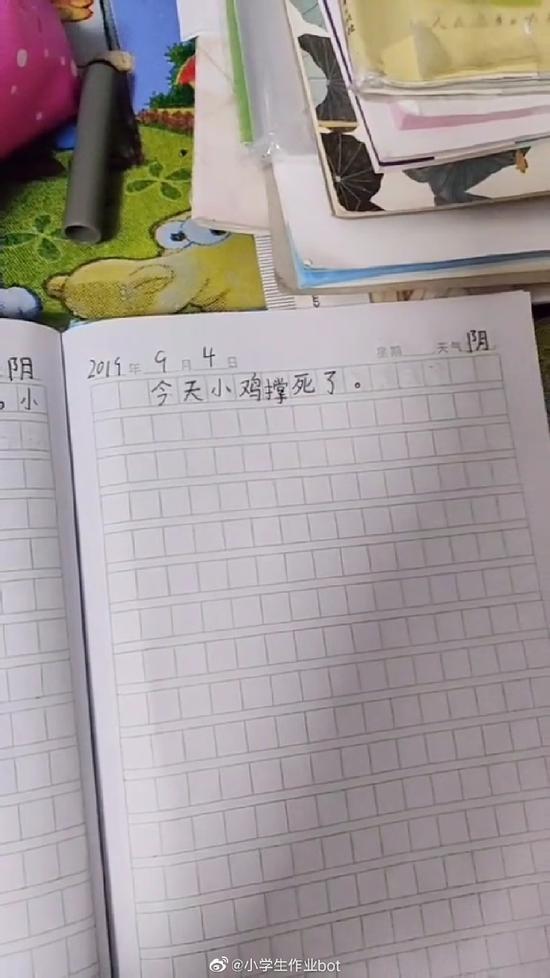 阴
。小
2019年 9月 4日 星期 天气 阴
今天小鸡撑死了。
@小学生作业bot